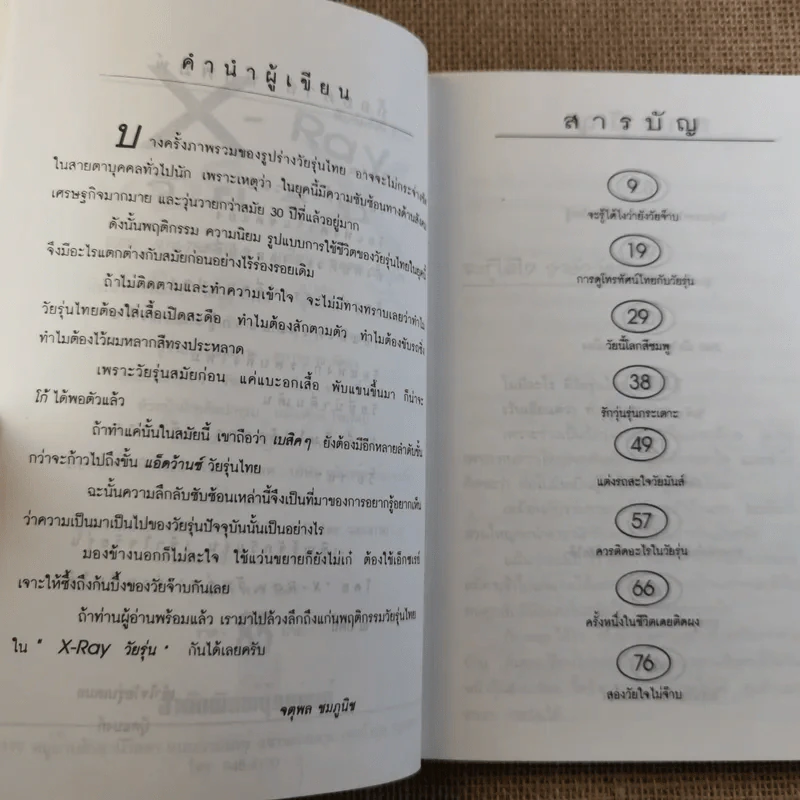 คำนำผู้เขียน
บางครั้งภาพรวมของรูปร่างวัยรุ่นไทย อาจจะไม่กระจ่างชัด
ในสายตาบุคคลทั่วไปนัก เพราะเหตุว่า ในยุคนี้มีความซับซ้อนทางด้านสังคม
เศรษฐกิจมากมาย และวุ่นวายกว่าสมัย 30 ปีที่แล้วอยู่มาก
ดังนั้นพฤติกรรม ความนิยม รูปแบบการใช้ชีวิตของวัยรุ่นไทยในยุคนี้
จึงมีอะไรแตกต่างกับสมัยก่อนอย่างไร้ร่องรอยเดิม
ถ้าไม่ติดตามและทำความเข้าใจ จะไม่มีทางทราบเลยว่าทำไม
วัยรุ่นไทยต้องใส่เสื้อเปิดสะดือ ทำไมต้องสักตามตัว ทำไมต้องขับรถซิ่ง
ทำไมต้องไว้ผมหลากสีทรงประหลาด
เพราะวัยรุ่นสมัยก่อน แค่แบะอกเสื้อ พับแขนขึ้นมา ก็น่าจะ
โก้ ได้พอตัวแล้ว
ถ้าทำแค่นั้นในสมัยนี้ เขาถือว่า เบสิคๆ ยังต้องมีอีกหลายลำดับขั้น
กว่าจะก้าวไปถึงขั้น แอ็ดว้านซ์ วัยรุ่นไทย
ฉะนั้นความลึกลับซับซ้อนเหล่านี้จึงเป็นที่มาของการอยากรู้อยากเห็น
ว่าความเป็นมาเป็นไปของวัยรุ่นปัจจุบันนั้นเป็นอย่างไร
มองข้างนอกก็ไม่สะใจ ใช้แว่นขยายก็ยังไม่เก๋ ต้องใช้เอ็กซเรย์
เจาะให้ซึ้งถึงก้นบึ้งของวัยจ๊าบกันเลย
ถ้าท่านผู้อ่านพร้อมแล้ว เรามาไปล้วงลึกถึงแก่นพฤติกรรมวัยรุ่นไทย
ใน " X-Ray วัยรุ่น " กันได้เลยครับ
จตุพล ชมภูนิช
สารบัญ
9
จะรู้ได้ไงว่ายังวัยจ๊าบ
19
การดูโทรทัศน์ไทยกับวัยรุ่น
29
วัยนี้โลกสีชมพู
38
รักวุ่นรุ่นกระเตาะ
49
แต่งรถสะใจวัยมันส์
57
ควรคิดอะไรในวัยรุ่น
66
ครั้งหนึ่งในชีวิตเคยติดผง
76
สองวัยใจไม่จ๊าบ